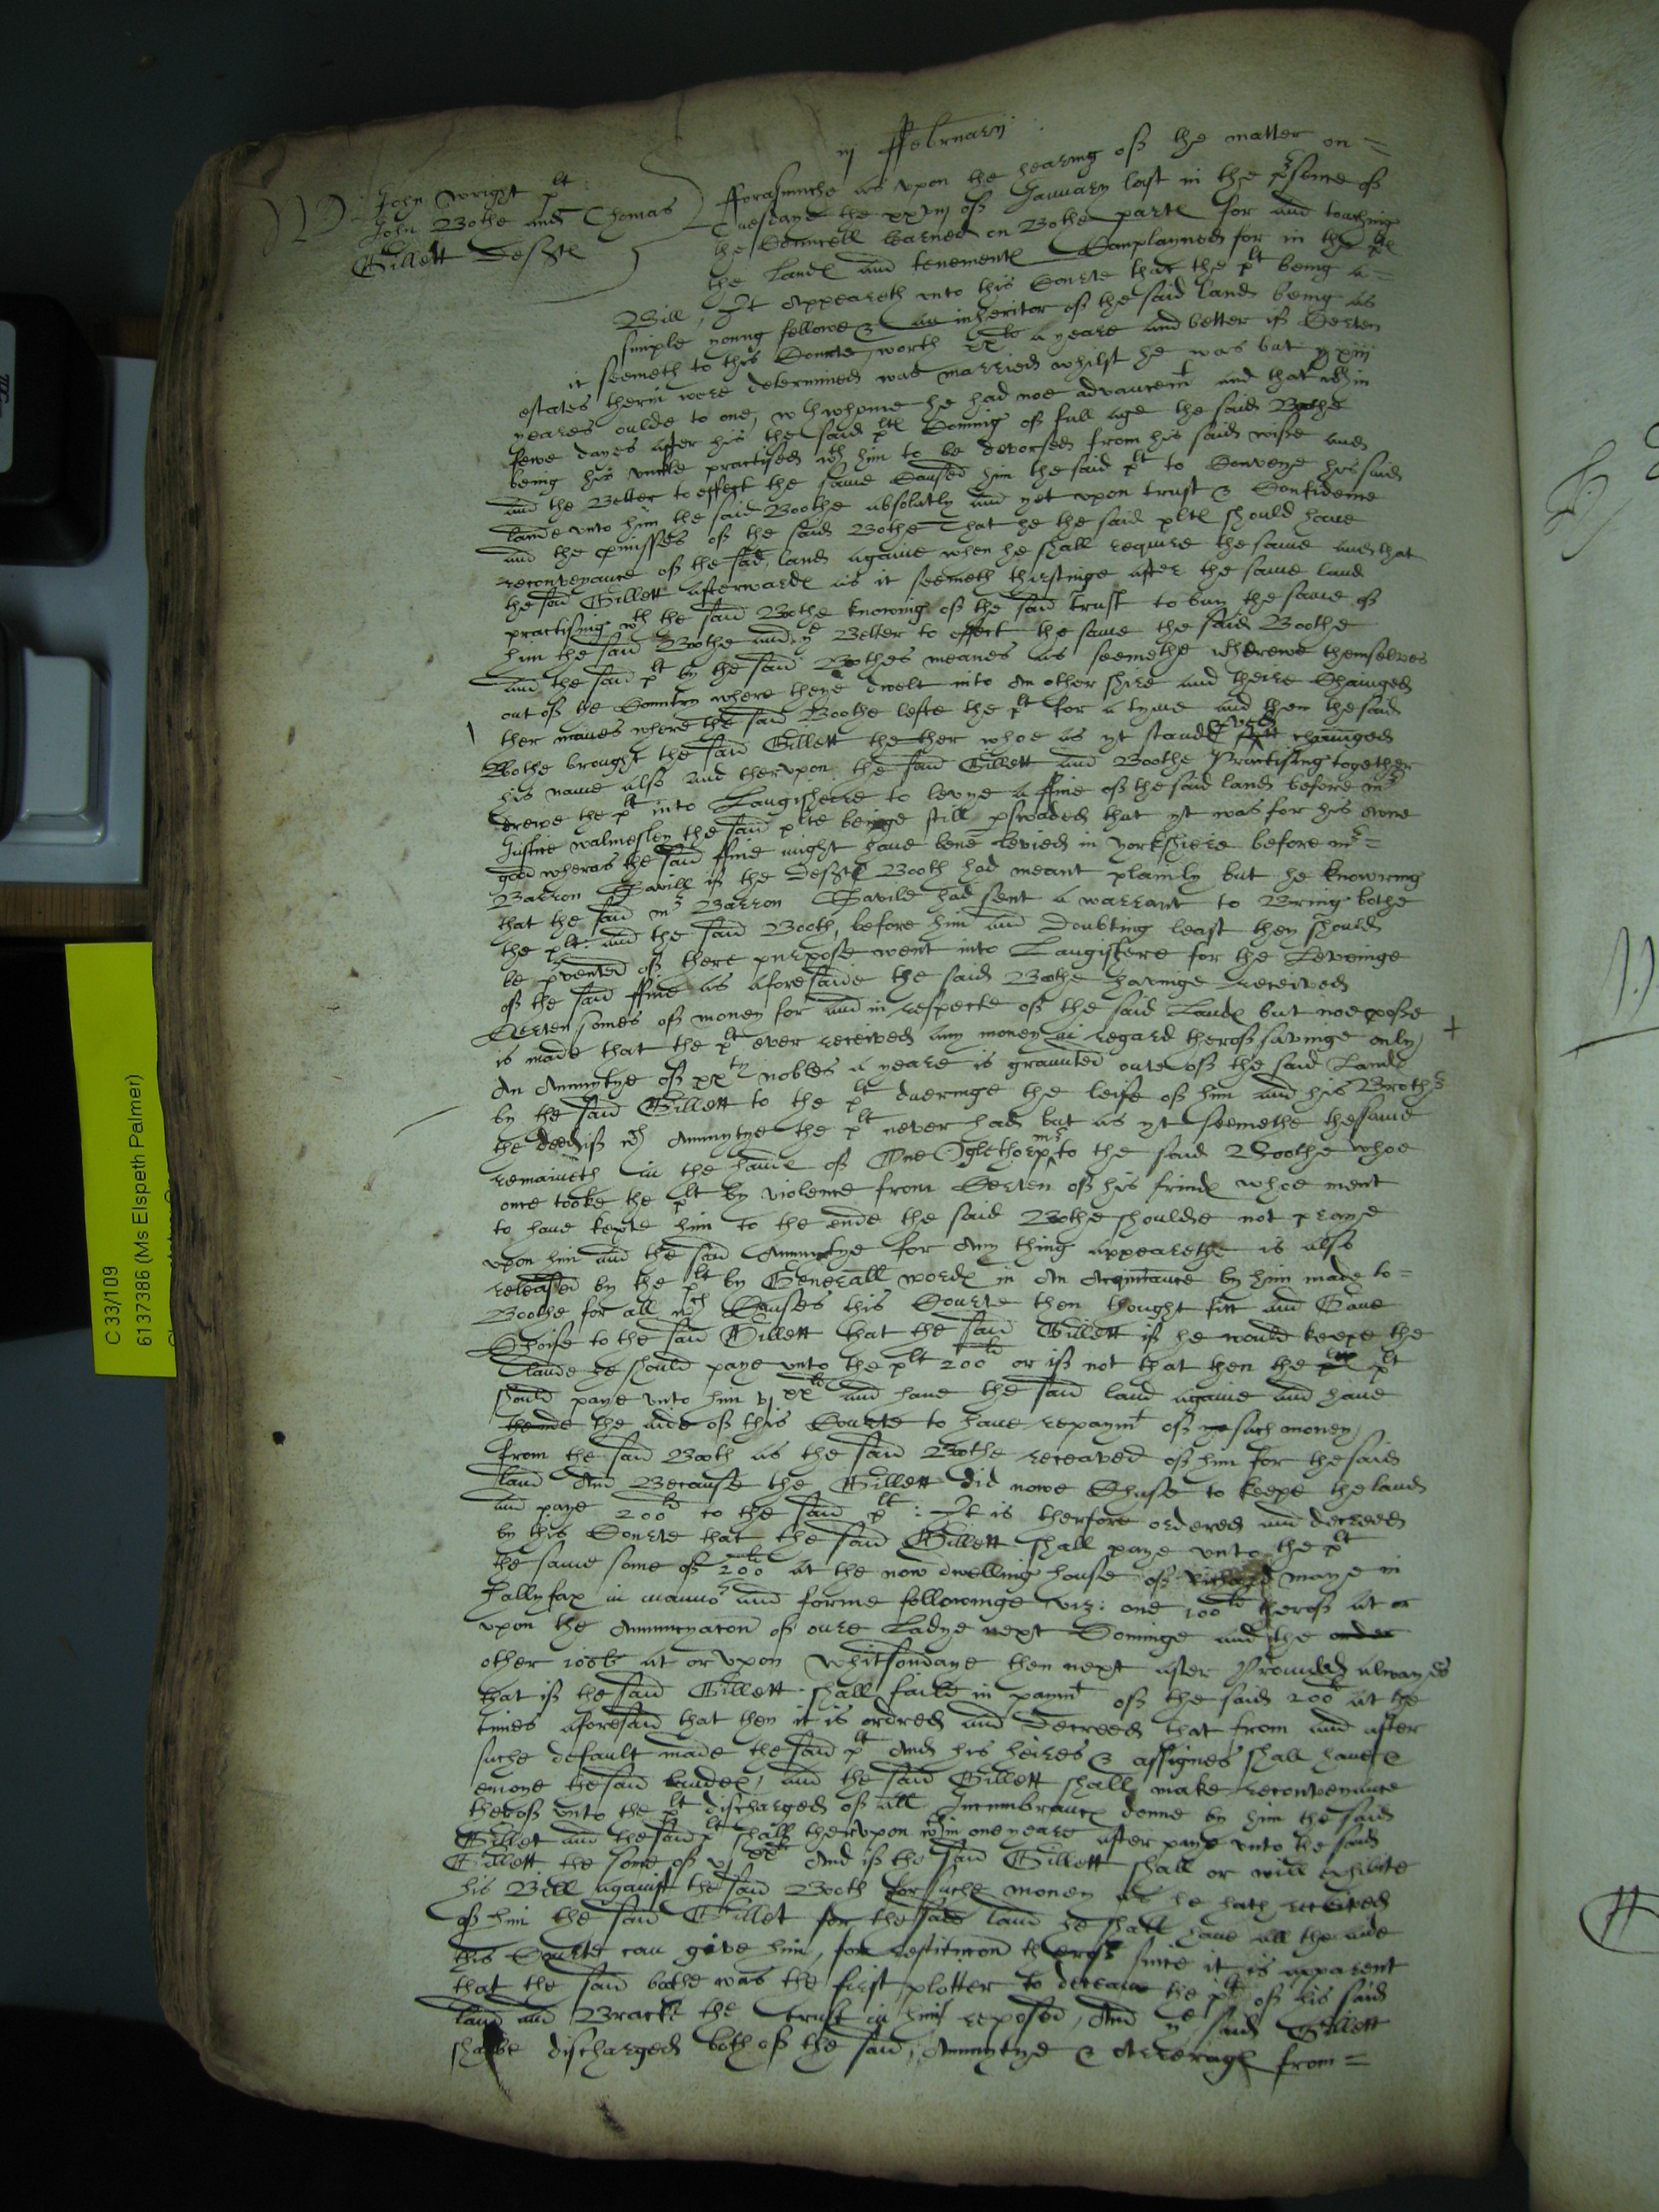 iij ffebruarij
W
John wright plt
John Bothe and Thomas
Gillett defftes
fforasmuche as vpon the hearing off the matter on =
Tuesdaye the xxiiij off January last in the psence off
the Councell learned on Bothe partes for and touching
the Landes and tenementes Complayned for in the pltes
Bill, It Appeareth vnto this Courte that the plt being a =
simple young fellowe & an inheritor off the said land being as
it seemeth to this Courte worth xxli a yeare and better iff Certen
estates therin were determined was married whilst he was but xiij
yeares oulde to one, wth whome he had noe advancemt and that wthin
fewe dayes after his the said pltes Coming off full age the said Bothe
being his vnckle practised wth him to be devorsed from his said wiffe and
and the Better to effect the same Caused him the said plt to Conveye his said
lande vnto him the said Boothe absolutly and yet vpon trust & Confidence
and the pmisses off the said Bothe That he the said pltes should have
reconveyance off the said land againe when he shall require the same and that
the said Gillett afterwardes as it seemeth thirstinge after the same land
practising wth the said Bothe knowing off the said trust to buy the same off
him the said Boothe and ye Better to effect the same the said Boothe
and the said plt by the said Boothes meanes as seemethe wthdrewe themselves
out off the Country where theye dwelt into An other shire and theire Chainged
ther names where the said Boothe lefte the plt for a tyme and then the said
Bothe brought the said Gillett thether whoe as yt standes chainged
his name also and thervpon the said Gillett and Boothe Practising together
drewe the plt into Langishere to levye a ffine off the said land before mr
Justice walmesley the said plte beinge still pswaded that yt was for his owne
good wheras the said ffine might have bene levied in yorkshiere before mr =
Barron Savill if the deffte Booth had meant plainly but he knowing
that the said mr Barron Savile had sent a warrant to Bring bothe
the plt and the said Booth, before him and Doubting least they should
be pvented off there purpose went into Langishere for the Leveinge
off the said ffine as aforesaide the said Bothe havinge received
Certen somes off money for and in respecte off the said Landes but noe proffe
is made that the plt ever received any money in regard theroff savinge only
An Annuytye off xxty nobles a yeare is graunted oute off the said Landes
by the said Gillett to the plt dueringe the leife off him and his Brothr
the deed iff wch Annuytye the plt never had but as yt seemethe the same
remaineth in the handes off One mr Oglethorp to the said Boothe whoe
once tooke the plt by violence from Certen off his frindes whoe ment
to have kepte him To the ende the said Bothe shoulde not praye
vpon him and the said Annuytye for Any thing appearethe is also
released by the plt by Generall wordes in An Acquittance by him made to =
Boothe for all wch Causes this Courte then thought fitt and Gave
Choise to the said Gillett that the said Gillett iff he would keepe the
lande he should paye vnto the plt 200li or iff not that then the plt
should paye vnto him vj xxli and have the said land againe and have
the aide off this Courte to have repaymt off such money
from the said Booth as the said Bothe receaved off him for the said
land And Because the Gillett did nowe Chuse to keepe the land
and paye 200li to the said plt: It is therfore ordered and decreed
by this Courte that the said Gillett shall paye vnto the plt
the same some off 200li at the now dwelling house off Richard maye in
Hallyfax in mannor and forme followinge viz: one 100li theroff At or
vpon the Annuncyacon off oure Ladye next Cominge and the order
other 100li at or vpon Whitsondaye then next after Provided alwayes
that iff the said Gillett shall faile in paymt off the said 200li at the
times aforesaid that then it is ordred and Decreed that from and after
suche default made the said plt And his heires & assignes shall have &
enioye the said landes, and the said Gillett shall make reconveyance
theroff vnto the plt discharged off all Incumbrances donne by him the said
Gillet and the said plt shall thervpon wthin one yeare after paye vnto the said
Gillett the some off vj xxli And iff the said Gillett shall or will exhibite
his Bill against the said Booth for suche money as he hath received
off him the said Gillet for the said land he shall have all the aide
this Courte can give him, for restitucon theroff since it is apparent
that the said bothe was the first plotter to deceave the plt off his said
land and Bracke the trust in him reposed, And ye said Gillett
shalbe discharged both off the said Annuytye & Arrerages from =
C 333/109
6137386 (Ms Elspeth Palmer)